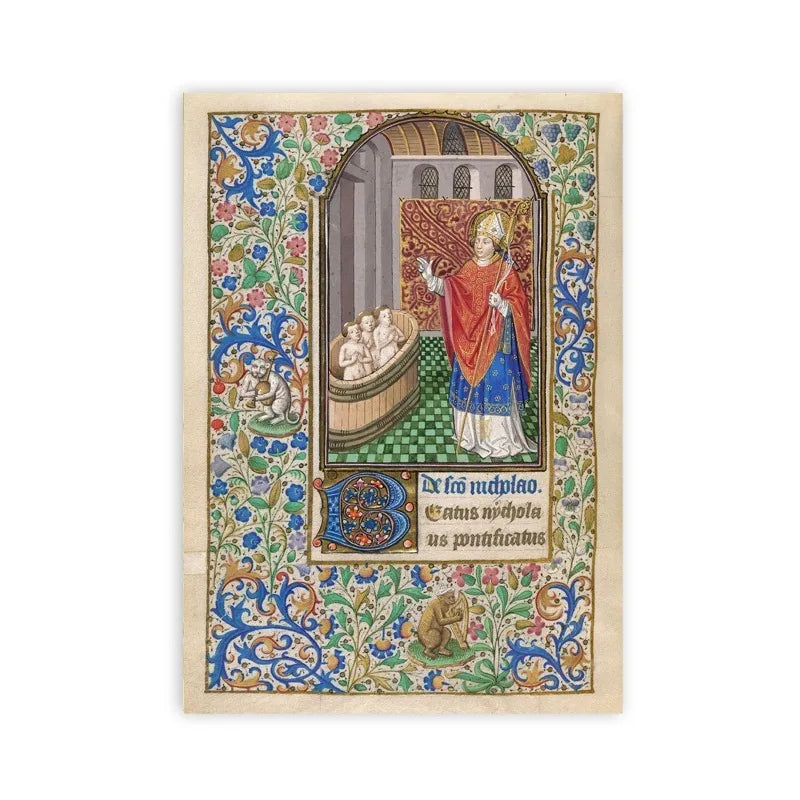 De scō nicholao.
Beatus nychola
us pontificatus